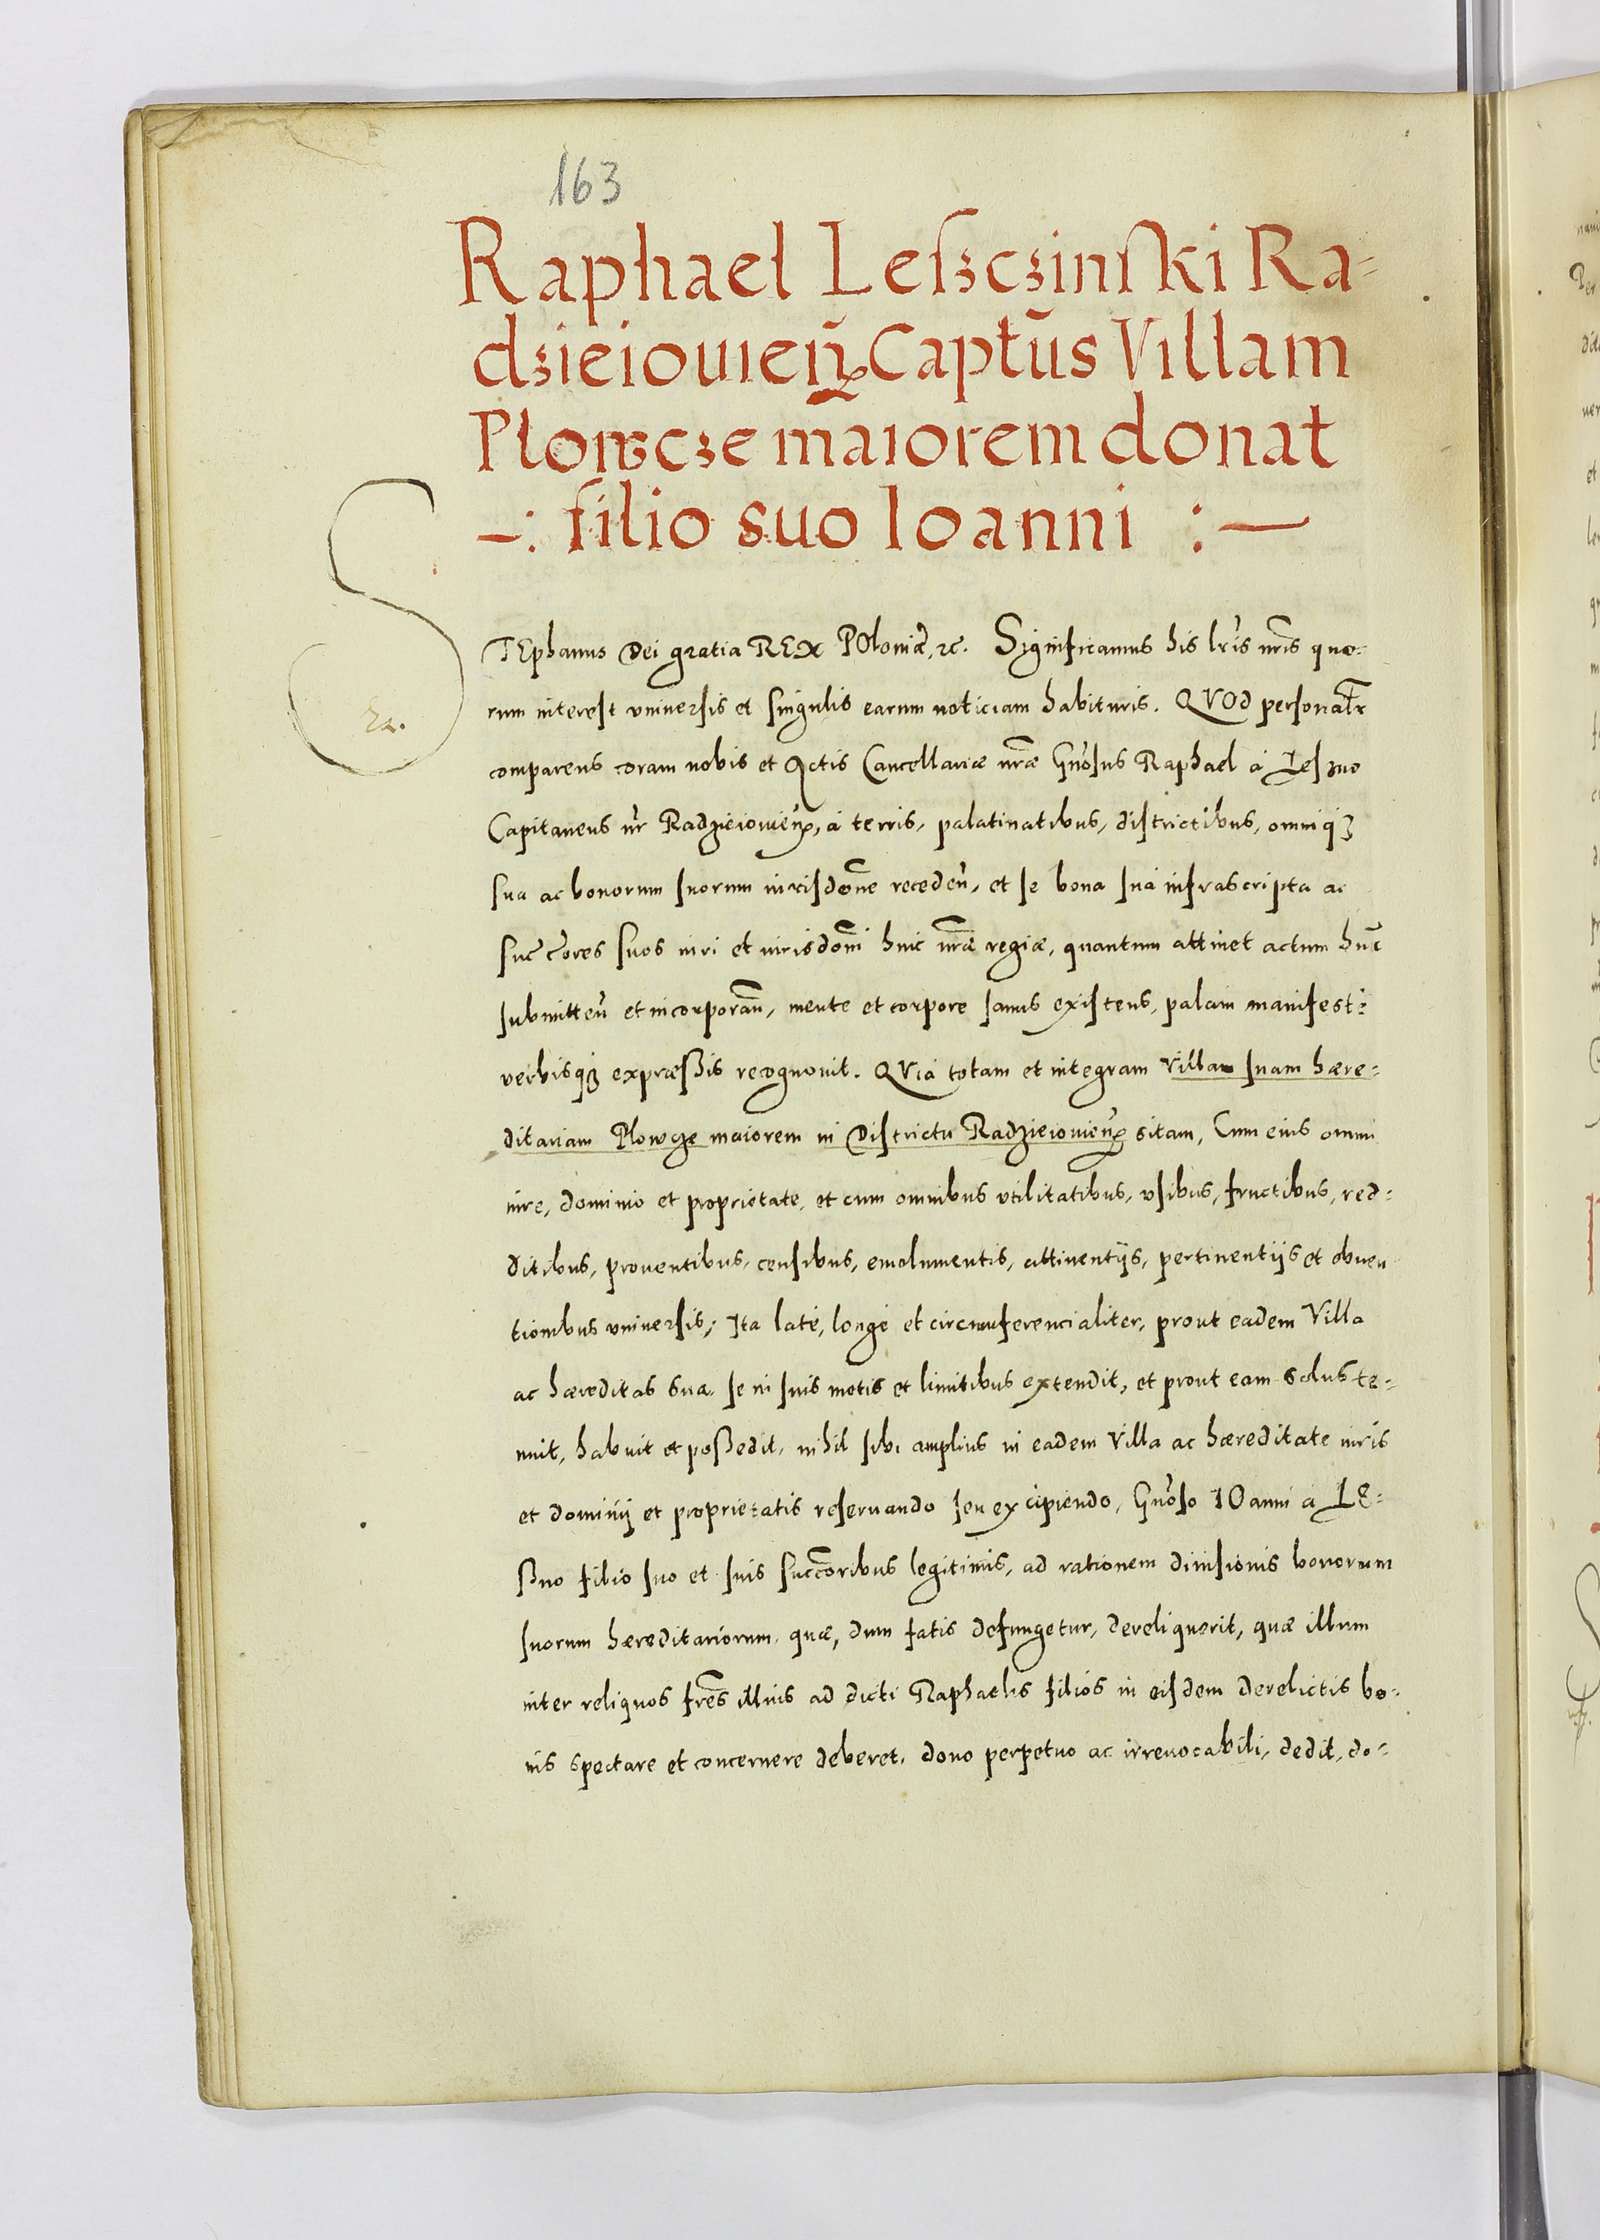 163
Raphael Leſzczinſki Ra-
dzieiouieñ Captūs Villam
Plowcze maiorem donat
-: filio suo Ioanni :-
STEphanus Dei gratia REX POloniæ, ꝛc. Significamus his lr̃is nr̃is quo-
rum interest vniuersis et singulis earum noticiam habituris. QVOd personalr̃
comparens coram nobis et Actis Cancellariæ nr̃æ Gñosus Raphael á Leszno
Capitaneus nr̃ Radzieiouieñ, á terris, palatinatibus, districtibus, omniqꝫ
sua ac bonorum suorum iurisdone receden̄, et se bona suá infrascripta ac
suc̄c̄ores suos iuri et iurisdoni huic nr̃æ regiæ, quantum attinet actum hunc
submitten̄ et incorporan̄, mente et corpore sanus existens, palam manifeste
verbisqꝫ expræssis recognouit. QViá totam et integram Villam suam hære-
ditariam Plowcze maiorem in Districtu Radzieiouien̄ sitam, Cum eius omni
iure, dominio et proprietate, et cum omnibus vtilitatibus, vsibus, fructibus, red-
ditibus, prouentibus, censibus, emolumentis, attinentijs, pertinentijs et obuen
tionibus vniuersis, Ita laté, longé et circumferencialiter, prout eadem Villa
ac hæreditas sua se in suis metis et limitibus extendit, et prout eam solus te-
nuit, habuit et poßedit, nihil sibi amplius in eadem Villa ac hæreditate iuris
et dominij et proprietatis reseruando seu excipiendo, Gñoso IOanni á LE-
ßno filio suo et suis succ̄oribus legitimis, ad rationem diuisionis bonorum
suorum hæreditariorum, quæ, dum fatis defungetur, dereliquerit, quæ illum
inter reliquos frēs illius ad dicti Raphaelis filiós in eisdem derelictis bo-
nis spectare et concernere deberet, dono perpetuo ac irreuocabili, dedit, do-